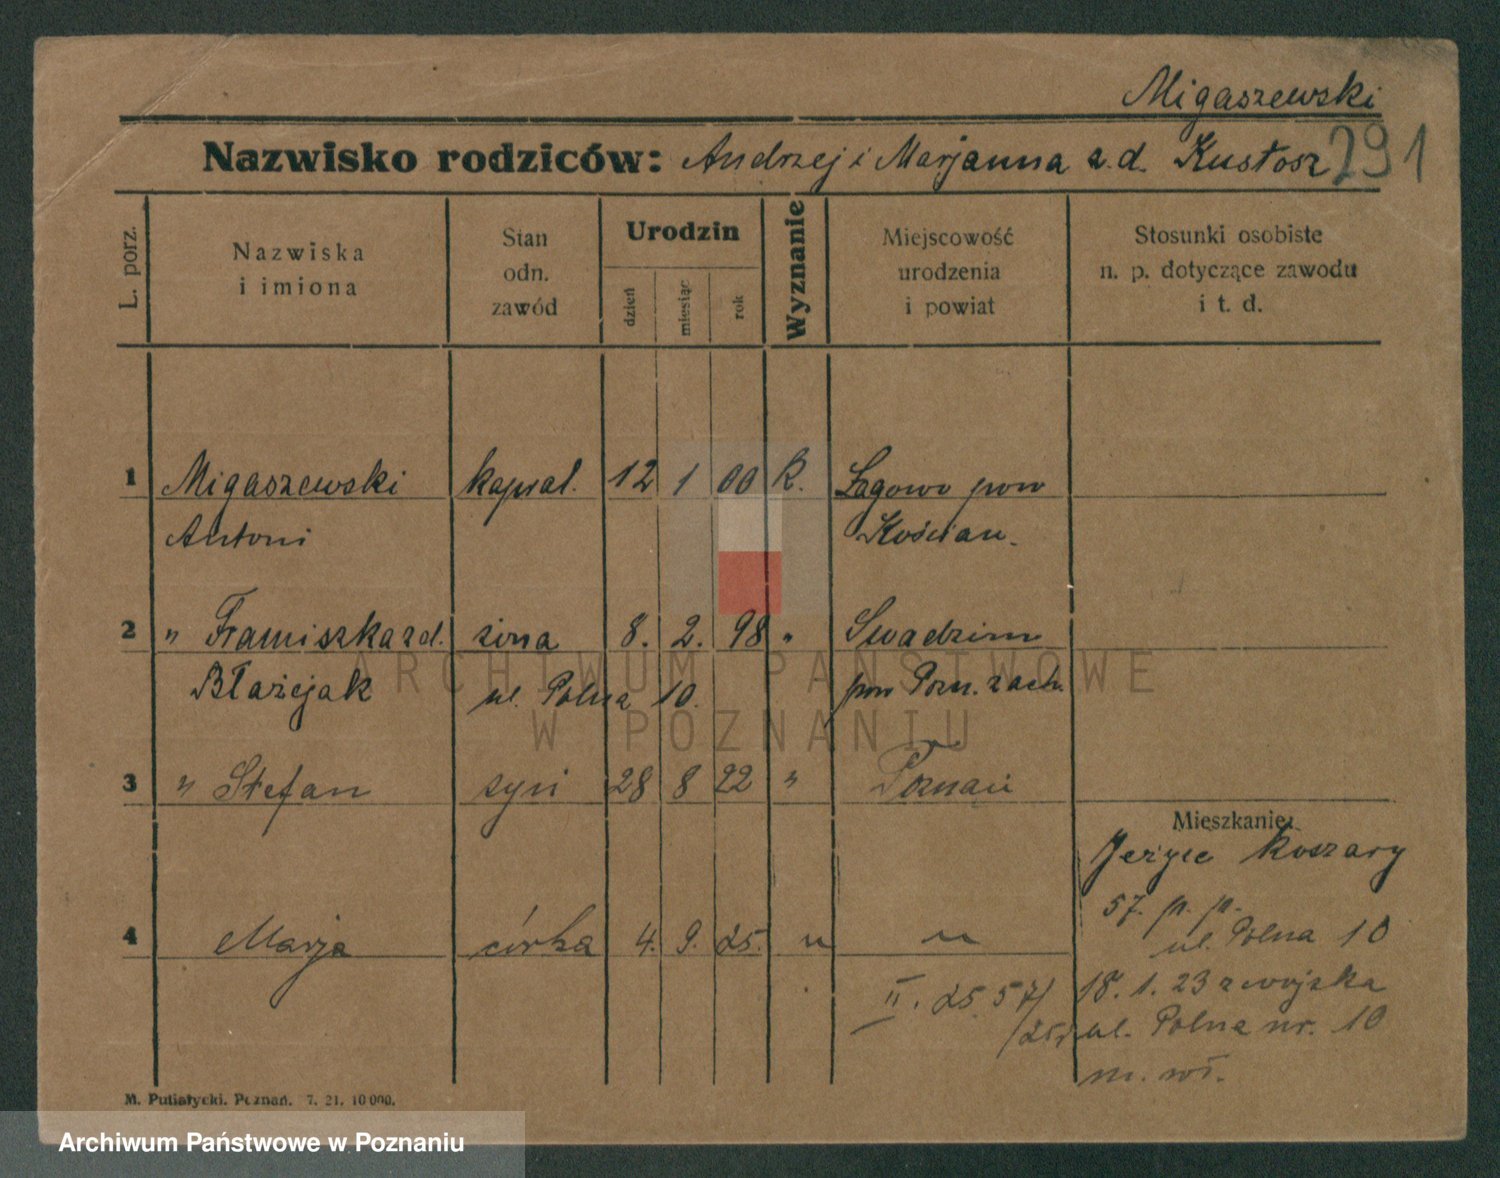 Migaszewski
Nazwisko rodziców: Andrzej i Marjanna z.d. Kustosz 291
L. porz.
Nazwiska
i imiona
Stan
odn.
zawód
Urodzin
dzień
miesiąc
rok
Wyznanie
Miejscowość
urodzenia
i powiat
Stosunki osobiste
n. p. dotyczące zawodu
i t. d.
1 Migaszewski kapral. 12 1 00 R. Łagowo pow
Antoni Kościan.
2 " Franciszka z d. żona 8. 2. 98 " Swadzim
Błażejak ul. Polna 10. pow Pozn. zach.
3 " Stefan syn 28 8 22 " Poznań
Mieszkanie:
Jeżyce Koszary
57. p. p.
4 Marja córka 4. 9. 25. " "
ul. Polna 10
II. 25. 57/
18.1.23 z wojska
ul. Polna nr. 10
m. wł.
M. Putiatycki, Poznań. 7. 21. 10 000.
ARCHIWUM PAŃSTWOWE
W POZNANIU
Archiwum Państwowe w Poznaniu